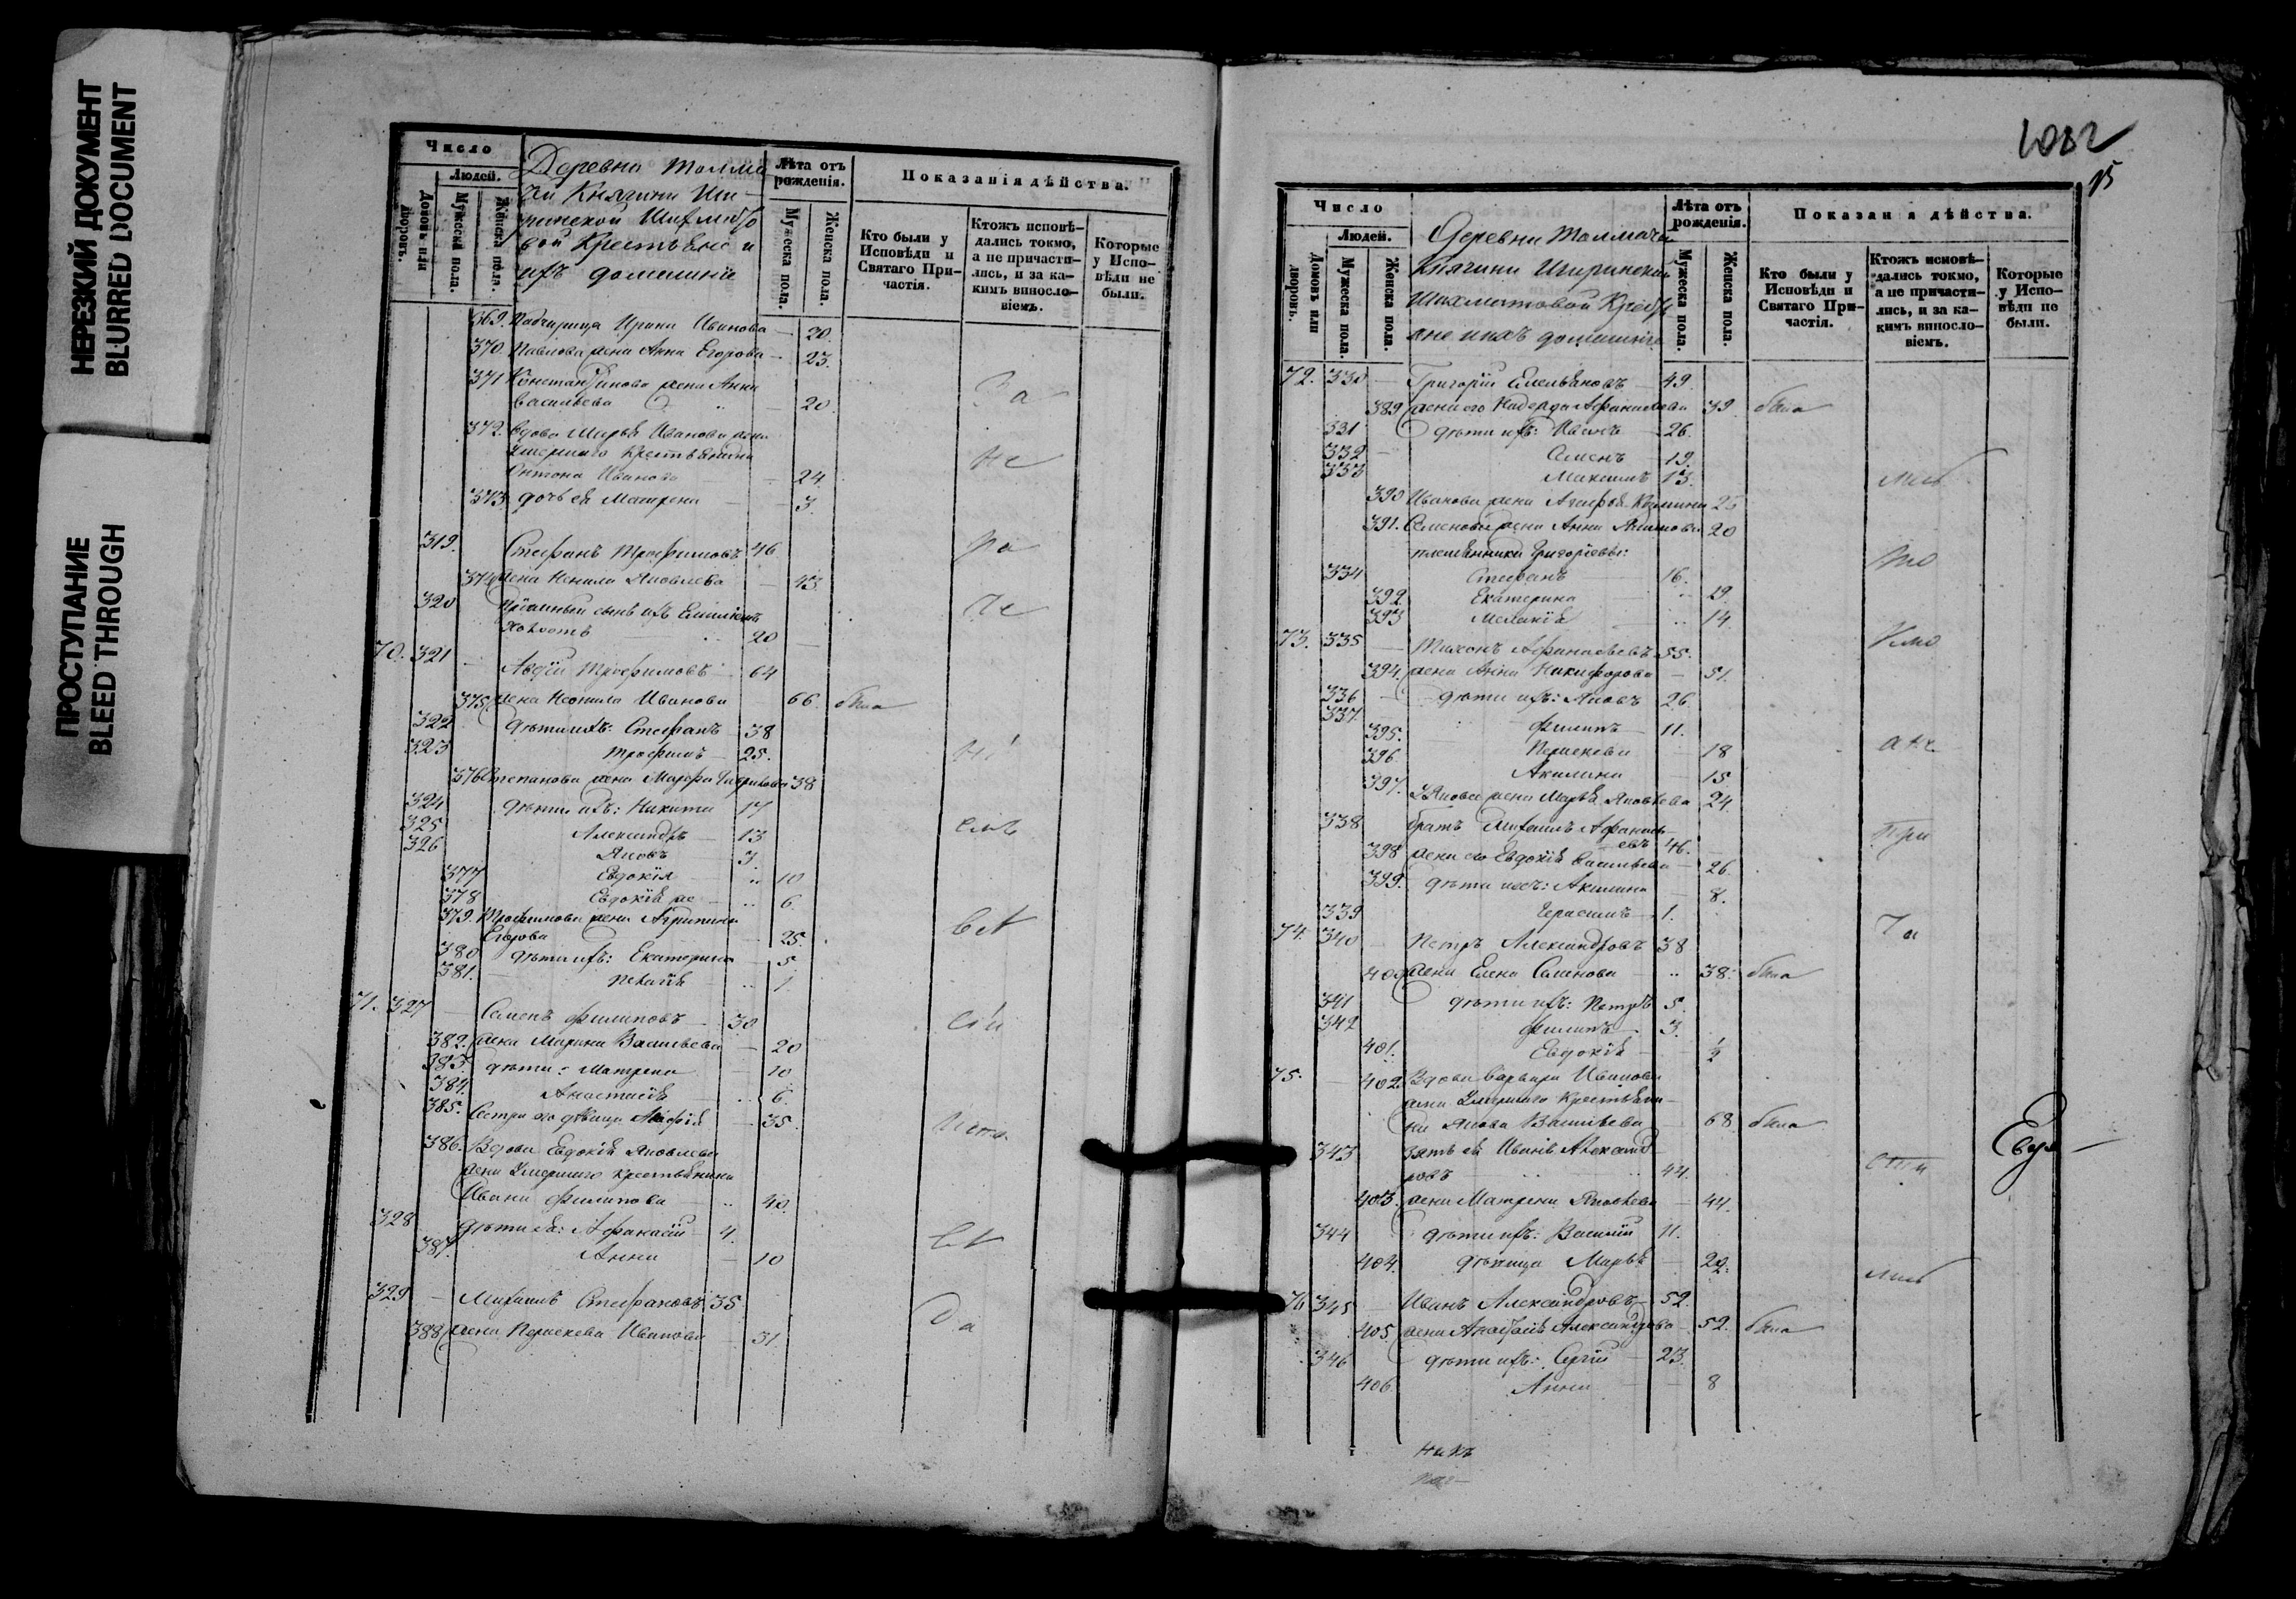 НЕРЕЗКИЙ ДОКУМЕНТ
BLURRED DOCUMENT
ПРОСТУПАНИЕ
BLEED THROUGH
Число
Людей.
Домовъ или дворовъ.
Мужеска пола.
Женска пола.
Деревни Толма
чей Княгини Ши
ринской Шихмато
вой Крестьяне и
ихъ домашніе
Лѣта отъ рожденія.
Мужеска пола.
Женска пола.
Показанія дѣйства.
Кто были у Исповѣди и Святаго Причастія.
Ктожъ исповѣдались токмо, а не причастились, и за какимъ винословіемъ.
Которые у Исповѣди не были.
369. Падчерица Ирина Иванова 20.
370. Павлова жена Анна Егорова 23.
371 Константинова жена Анна
Васильева 20
За
372. Вдова Марья Иванова жена
умершаго Крестьянина
Антона Иванова 24
не
373 дочь ея Матрена 3.
319. Стефанъ Трофимовъ 46
ра
374 жена Ненила Яковлева 43
320 Пріемный сынъ ихъ
20
70. 321 Авдій Трофимовъ 64
375 жена Неонила Иванова 66. была
322 дѣти ихъ: Стефанъ 38
323 Трофимъ 25.
376 Степанова жена Марфа Гаврилова 38
324 дѣти ихъ: Никита 17
325 Александръ 13
326 Яковъ 7.
377 Евдокія 10
378 Евдокія же 6.
379. Трофимова жена Агрипина
Егорова 25.
380 дѣти ихъ: Екатерина 5
381. Пелагія 1
71. 327 Семенъ Филиповъ 30
382. жена Марина Васильева 20
383. дѣти: Матрена 10
384. Анастасія 6.
385. Сестра его дѣвица 35
386. Вдова Евдокія Яковлева
жена Умершаго Крестьянина
Ивана Филипова 40.
328 дѣти ея: Афанасій 4.
387. Анна 10
329 Михаилъ Стефановъ 35
388 жена Параскева Иванова 31
1032
15
Число
Людей.
Домовъ или дворовъ.
Мужеска пола.
Женска пола.
Деревни Толмачей
Княгини Ширинской
Шихматовой Кресть
яне и ихъ домашніе
Лѣта отъ рожденія.
Мужеска пола.
Женска пола.
Показанія дѣйства.
Кто были у Исповѣди и Святаго Причастія.
Ктожъ исповѣдались токмо, а не причастились, и за какимъ винословіемъ.
Которые у Исповѣди не были.
72. 330 Григорій Емельяновъ 49.
389 жена его Надежда Афанасьева 39 была
331 дѣти ихъ: Иванъ 26.
332 Семенъ 19.
333 Максимъ 13.
390 Иванова жена 25
391. Семенова жена Анна 20
племянники Григорьевы:
334 Стефанъ 16.
392 Екатерина 19.
393 Меланія 14
73. 335 Тихонъ Афанасьевъ 55.
394. жена Анна Никифорова 51.
336 дѣти ихъ: Яковъ 26
337. Филипъ 11.
395. Параскева 18
396. Акилина 15
397. Якова жена Марья Яковлева 24
338 братъ Михаилъ Афанась
евъ 46.
при
398 жена его Евдокія Васильева 26
399. дѣти ихъ: Акилина 8.
339 Герасимъ 1.
74. 340 Петръ Александровъ 38
400 жена Елена Семенова 38. была
341 дѣти ихъ: Петръ 5.
342 Филипъ 3.
401. Евдокія ½
75. 402. Вдова Варвара Иванова
жена Умершаго Крестьяни
на Якова Васильева 68 была
343 зять ея Иванъ Александ
ровъ 44.
403. жена Матрена Яковлева 44.
344 дѣти ихъ: Василій 11.
404. дѣвица Марья 22.
76 345 Иванъ Александровъ 52.
405. жена Анастасія Александрова 52. была
346 дѣти ихъ: Сергій 23.
406. Анна 8